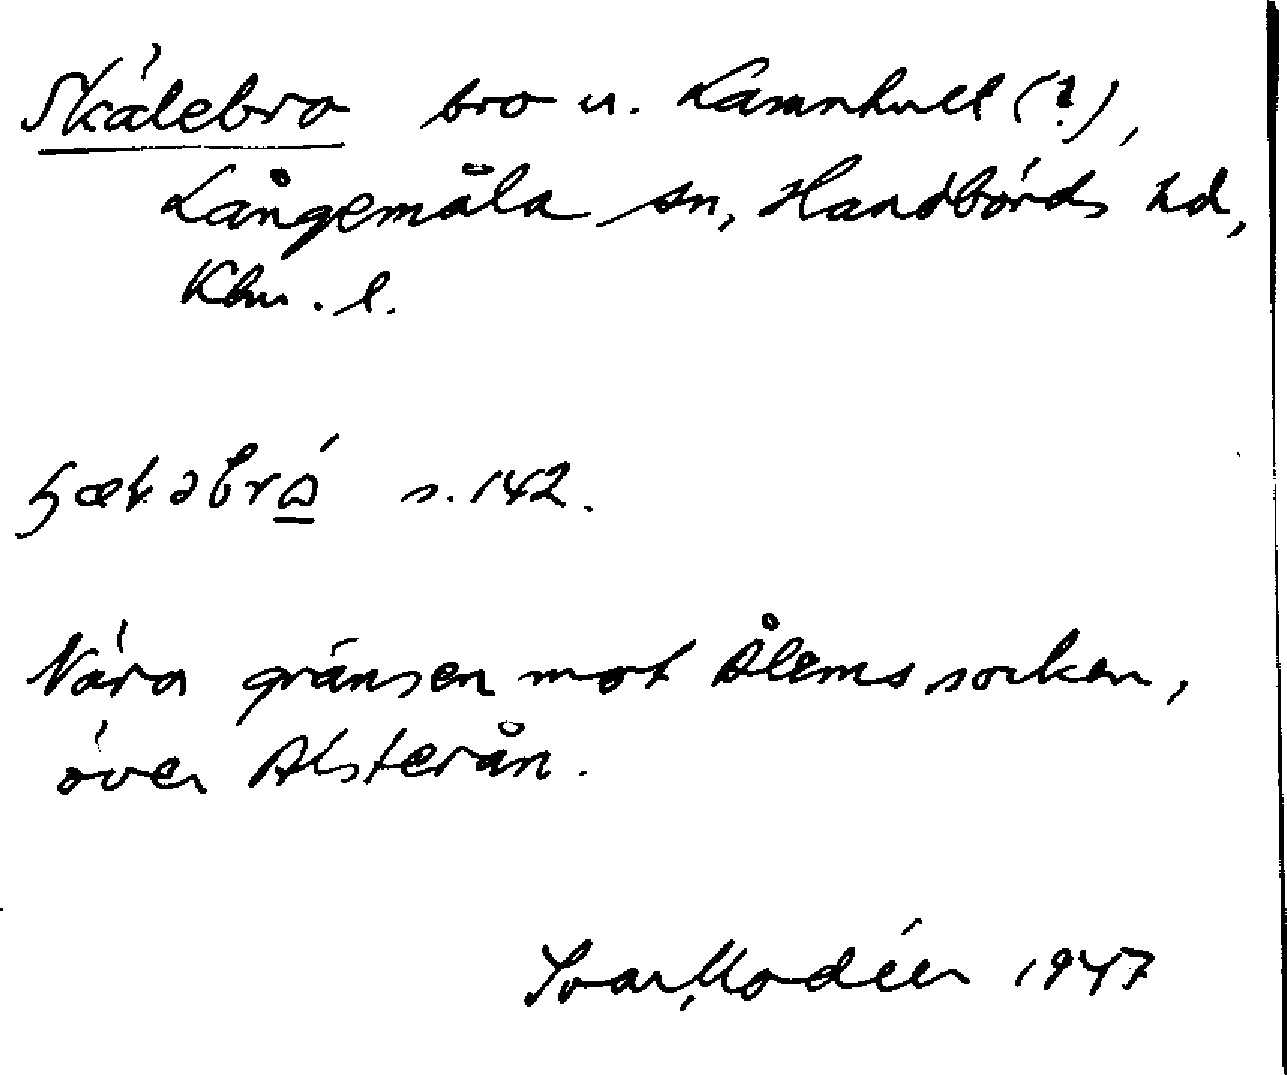 Skälebro bro u. Lamnhult (?),
Långemåla sn, Handbörds hd,
Klm. l.
s. 142.
Nära gränsen mot Ålems socken,
över Alsterån.
Ivar Modéer 1947